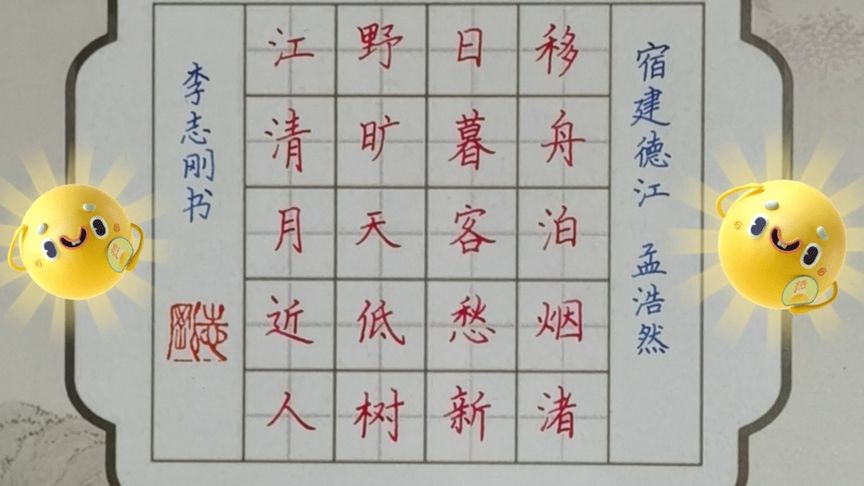 宿建德江 孟浩然
移舟泊烟渚
日暮客愁新
野旷天低树
江清月近人
李志刚书